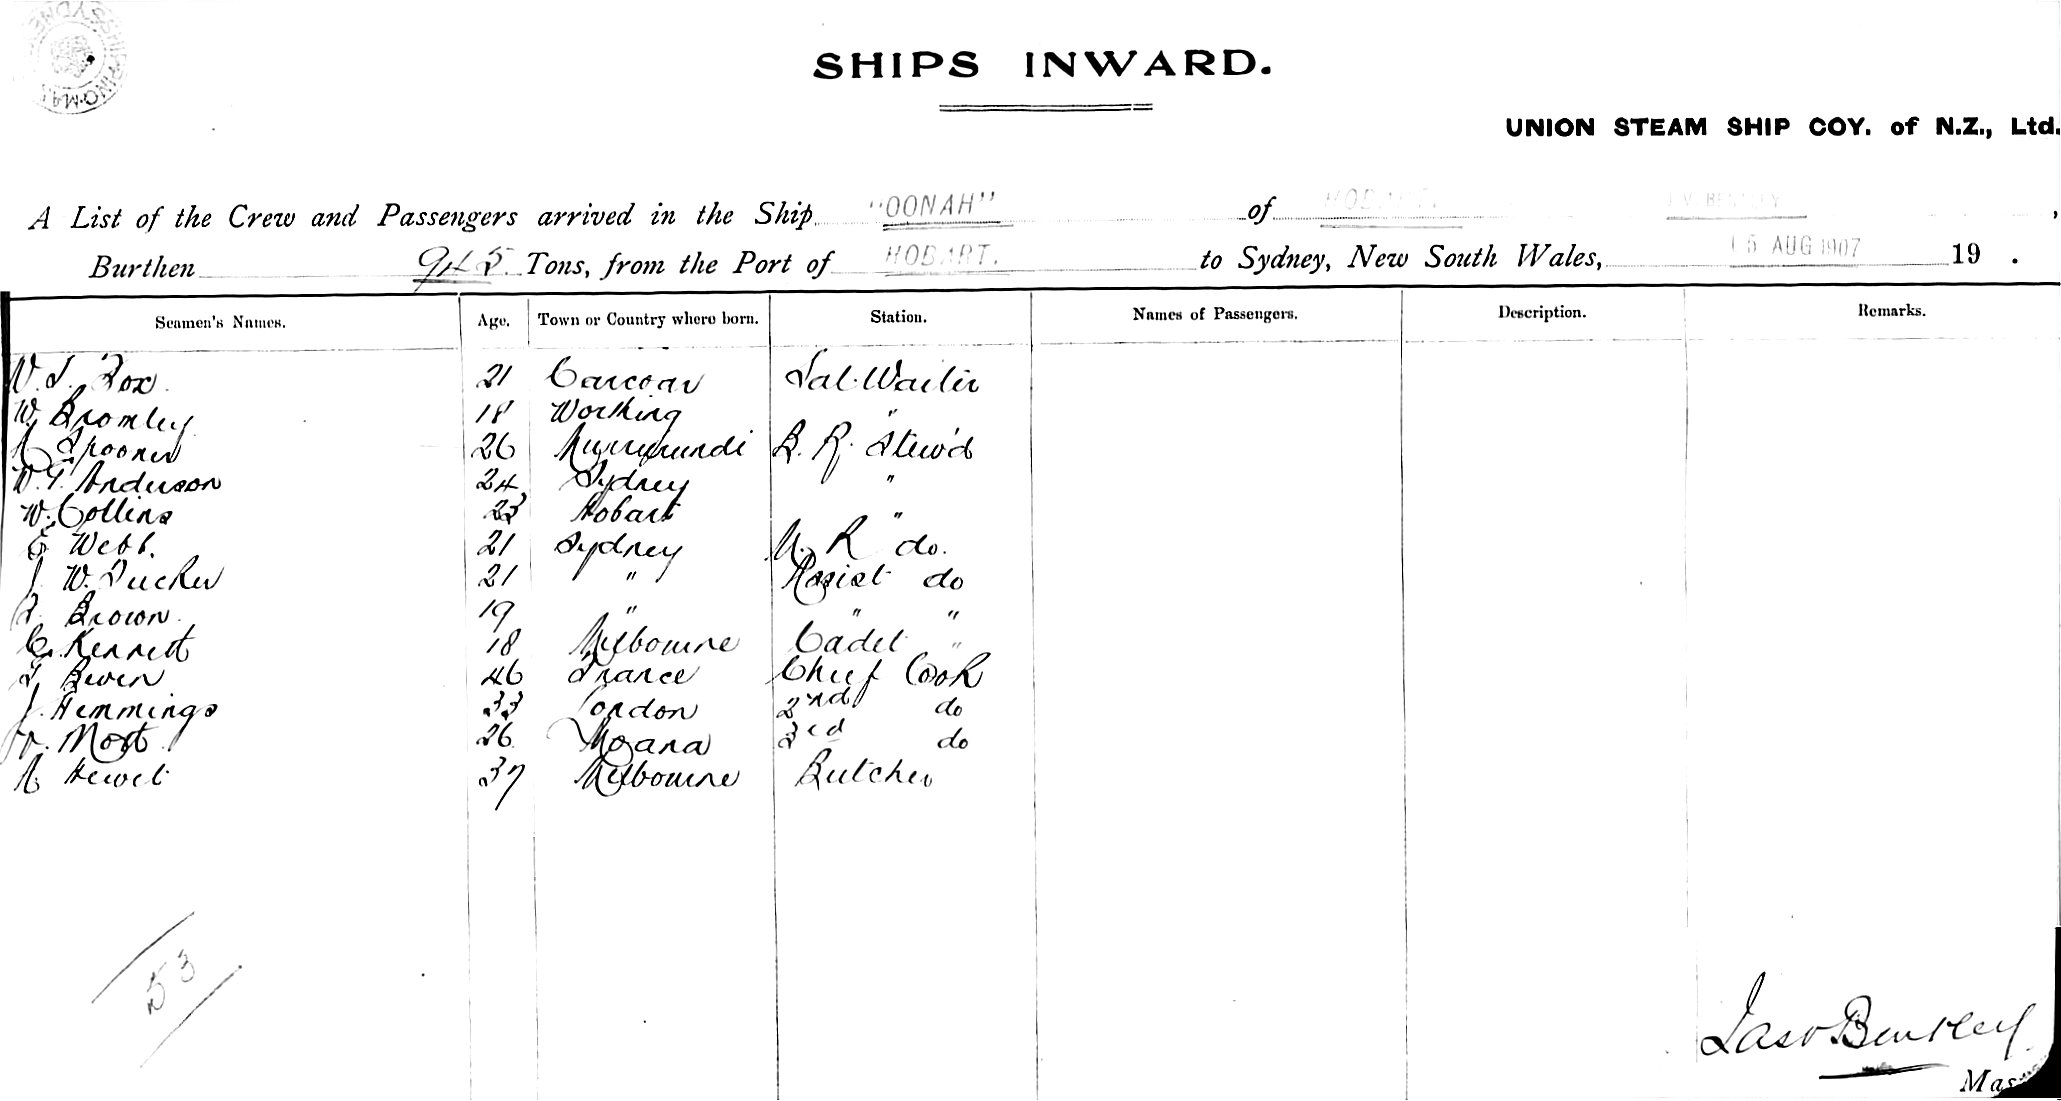 SHIPS INWARD.
UNION STEAM SHIP COY. of N.Z., Ltd.
A List of the Crew and Passengers arrived in the Ship "OONAH" of HOBART. J.V. BENTLEY,
Burthen 945 Tons, from the Port of HOBART. to Sydney, New South Wales, 15 AUG 1907 19 .
Seamen's Names. Age. Town or Country where born. Station. Names of Passengers. Description. Remarks.
W. J. Fox. 21 Carcoar Sal. Waiter
W. Bromley 18 Worthing "
Spooner 26 Murrurundi B. R. Stew'd
W. G. Anderson 24 Sydney "
W. Collins 23 Hobart "
E Webb. 21 Sydney M. R do.
J. W. Tucker 21 " Assist do
F. Brown 19 " " "
C. Kennett 18 Melbourne Cadet "
Beven 46 France Chief Cook
J. Hemmings 33 London 2nd do
Mort 26 3rd do
Hewet 37 Melbourne Butcher
53
Jas V Bentley
Mas